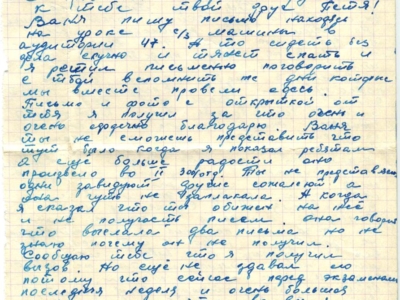 к тебе твой друг Петя!
Ваня пишу письмо находясь
на уроке с/х машины в
аудитории 47. А то сидеть без
дела скучно и тянет спать и
я решил письменно поговорить
с тобой вспомнить же дни которые
мы вместе провели здесь.
Письмо и фото с открыткой от
тебя я получил за что очень и
очень сердечно благодарю. Ваня
ты не сможешь представить что
тут было когда я показал ребятам
а ещё больше радости оно
произвело во II Ты не представляешь
одни завидуют другие сожалеют а
чуть не заплакала. А когда
я сказал что ты обижен на неё
и не получаешь писем она говорит
что послала два письма но не
знаю почему он не получил.
Сообщаю тебе что я получил
вызов. Но ещё не здавал
потому что сейчас перед экзаменами
последняя неделя и очень большая